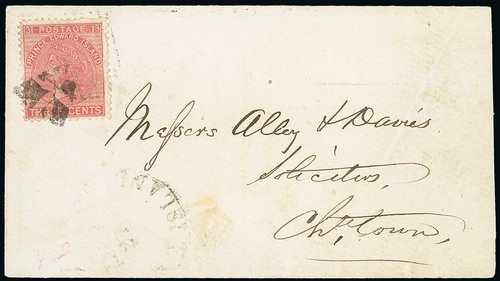 3 POSTAGE 3
PRINCE EDWARD ISLAND
THREE CENTS
Messers Alley & Davies
Soliciters,
Ch, town,
ISLAND